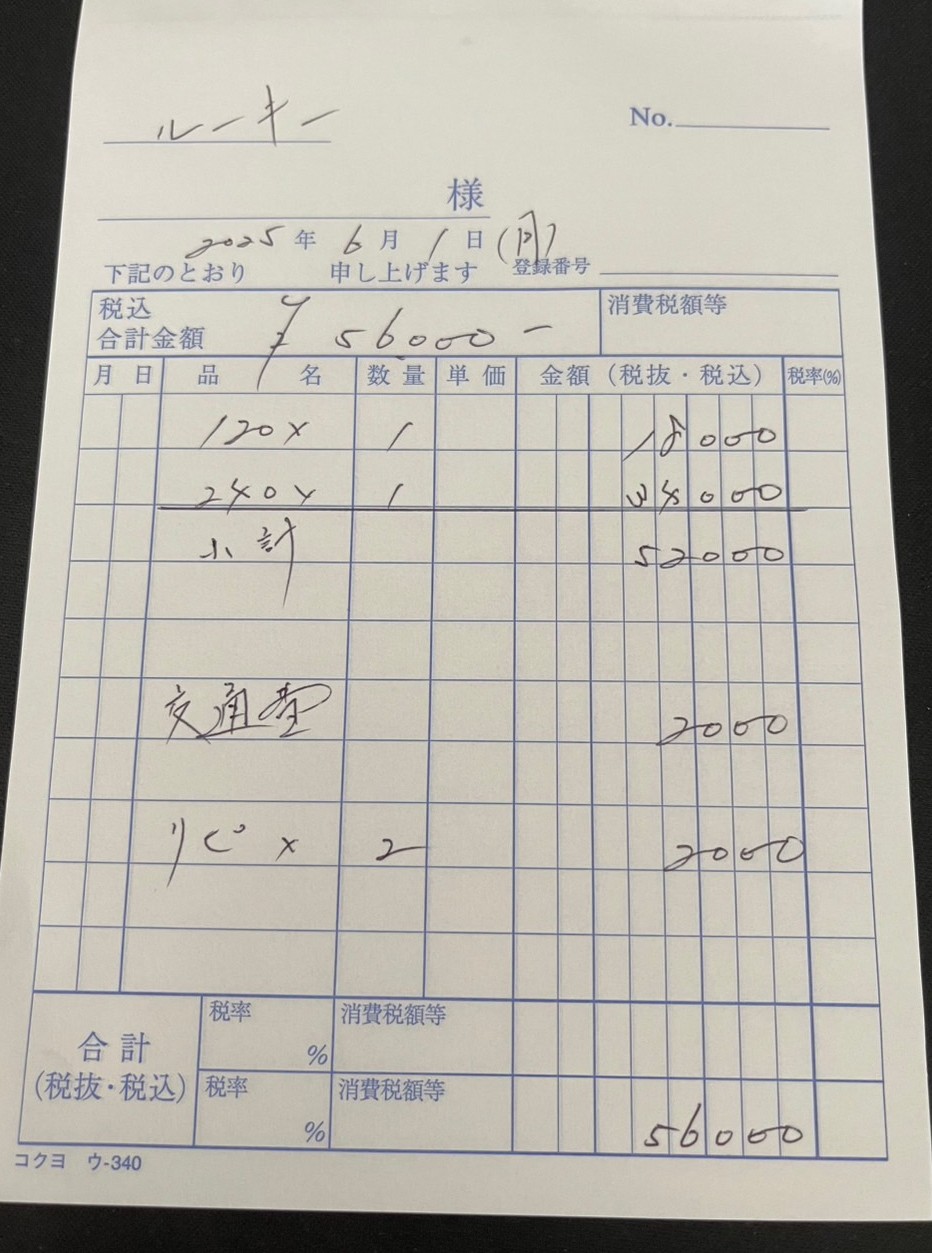 ルーキー
No.
様
2025年 6月 1日 (月)
下記のとおり 申し上げます 登録番号
税込 合計金額 ¥ 56000 - 消費税額等
月 日 品名 数量 単価 金額 (税抜・税込) 税率(%)
120× 1 18000
240× 1 34000
小計 52000
交通費 2000
リピ × 2 2000
税率 % 消費税額等
合計 (税抜・税込)
税率 % 消費税額等 56000
コクヨ ウ-340